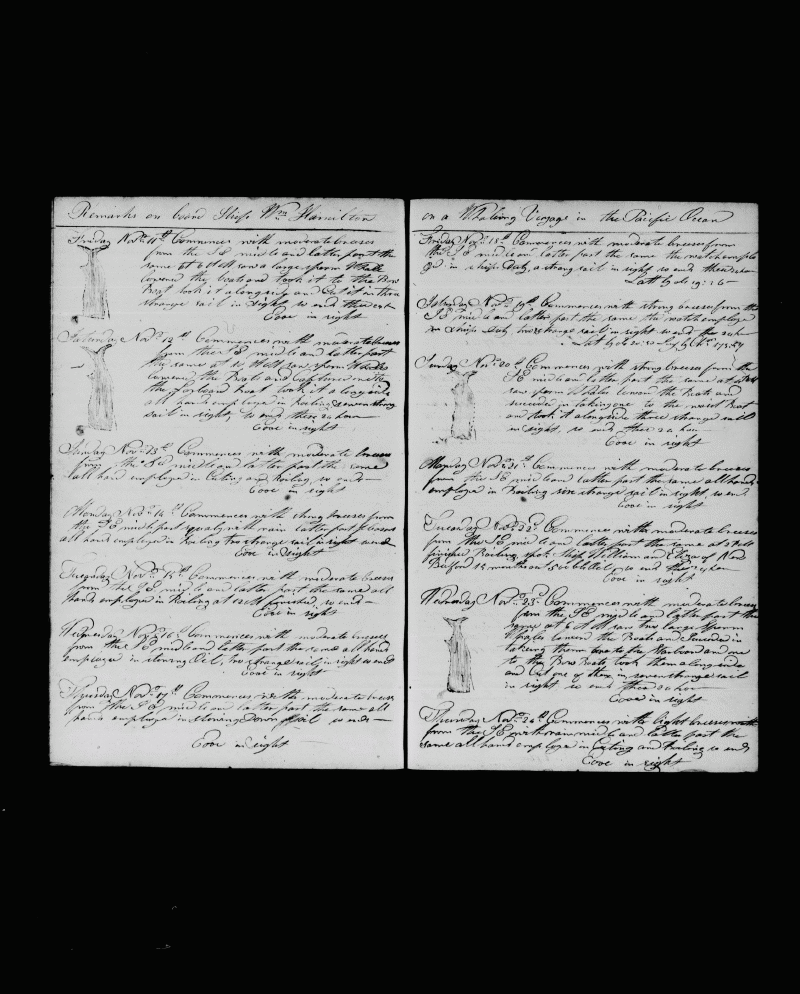 Remarks on board Ship Wm Hamilton
Friday Nov 11th Commences with moderate breeses
from the S E midle and latter part the
same at 6 AM saw a large sperm Whale
lowered the boats and took it to the Bow
Boat took it alongside and Cut it in three
strange sail in sight so ends these
Cove in sight
Saturday Nov 12th Commences with moderate breeses
from the S E midle and latter part
the same at AM saw sperm Whales
lowered the Boats and Captured
the Larboard Boat took it alongside
all hands employed in Boiling seven strang
sail in sight, so ends these 24 hours
Cove in sight
Sunday Nov 13th Commences with moderate breeses
from the S E midle and latter part the same
all hands employed in Cuting and Boiling, so ends
Cove in sight
Monday Nov 14th Commences with strong breeses from
the S E midle part squaly with rain latter part
all hands employed in Boiling two strange sail in sight so ends
Cove in sight
Nov 15th Commences with moderate breeses
from the S E midle and latter part the same all
hands employed in Boiling at 12 M finished, so ends
Cove in sight
Wednesday Nov 16th Commences with moderate breeses
from the S E midle and latter part the same all hands
employed in stowing Oil, two strange sail in sight so ends
Cove in sight
Thursday Nov 17th Commences with moderate breeses
from the S E midle and latter part the same all
hands employed in stowing down Oil so ends
Cove in sight
on a Whaleing Voyage in the Pacific Ocean
Friday Nov 18th Commences with moderate breeses from
the S E midle and latter part the same the watch employe
d in ships Duty, a strang sail in sight so ends these
Latt by
Saturday Nov 19th Commences with strong breeses from the
S E midle and latter part the same the watch employed
in ships Duty two strange sail in sight so ends these
Latt by
Sunday Nov 20th Commences with strong breeses from the
S E midle and latter part the same at
saw sperm Whales lowered the Boats and
succeeded in taking one to the waist Boat
and took it alongside three strange sail
in sight, so ends these 24 hours
Cove in sight
Monday Nov 21st Commences with moderate breeses
from the S E midle and latter part the same all hands
employed in Boiling strange sail in sight, so ends
Cove in sight
Nov 22d Commences with moderate breeses
from the S E midle and latter part the same at
finished Boiling spoke ship William and Eliza of New
Bedford months so ends these
Cove in sight
Wednesday Nov 23d Commences with moderate breeses
from the S E midle and latter part the
same at 6 AM saw two large sperm
Whales lowered the Boats and Suceeded in
takeing them one to the Starboard and one
to the Bow Boats took them along side
and Cut one of them in seven strange sail
in sight so ends these 24 hours
Cove in sight
Thursday Nov 24th Commences with light breeses
from the S E with rain midle and latter part the
same all hands employed in Cuting and Boiling so ends
Cove in sight